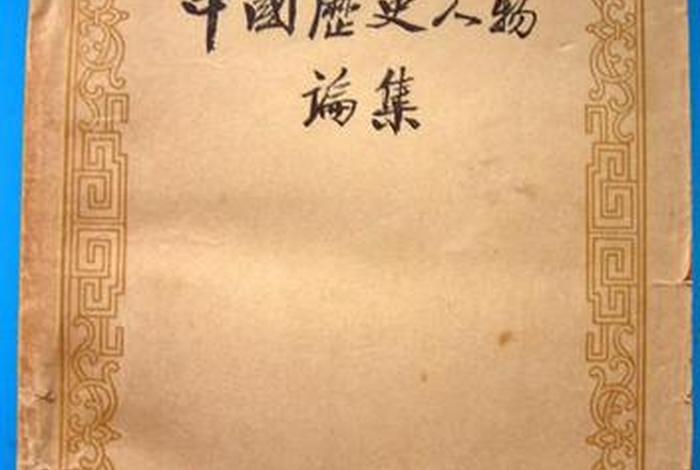 中國歷史人物
論集